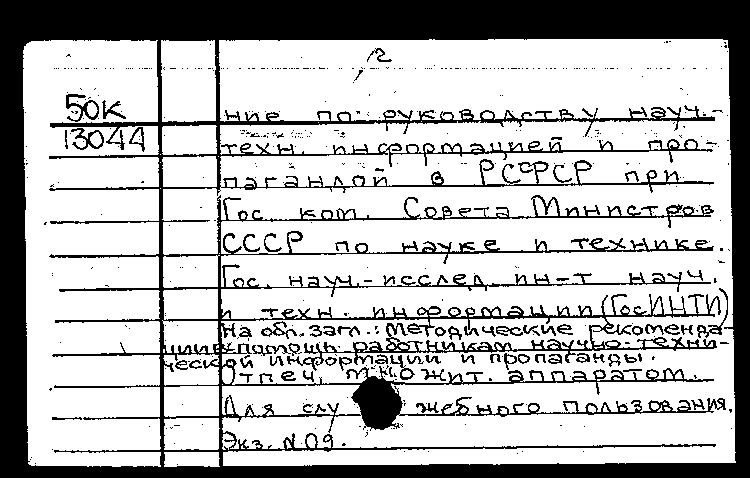 2
50К
ние по руководству науч.-
13044
техн. информацией и про-
пагандой в РСФСР при
Гос. ком. Совета Министров
СССР по науке и технике.
Гос. науч.-исслед. ин-т науч.
и техн. информации (ГосИНТИ)
На обл. загл.: Методические рекоменда-
ции в помощь работникам научно-техни-
ческой информации и пропаганды.
Отпеч. множит. аппаратом.
Для служебного пользования.
Экз. N 09.